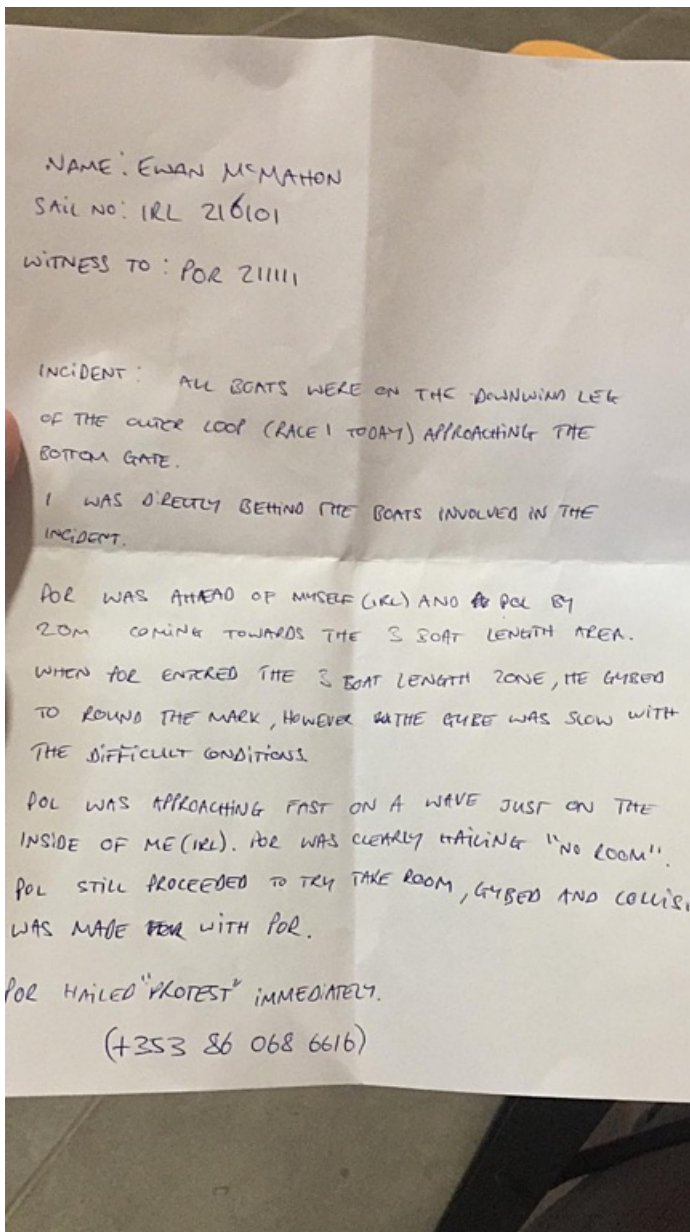 NAME: EWAN McMAHON
SAIL NO: IRL 216101
WITNESS TO: POR 211111
INCIDENT: ALL BOATS WERE ON THE DOWNWIND LEG
OF THE OUTER LOOP (RACE 1 TODAY) APPROACHING THE
BOTTOM GATE.
I WAS DIRECTLY BEHIND THE BOATS INVOLVED IN THE
INCIDENT.
POR WAS AHEAD OF MYSELF (IRL) AND POL BY
20M COMING TOWARDS THE 3 BOAT LENGTH AREA.
WHEN POR ENTERED THE 3 BOAT LENGTH ZONE, HE GYBED
TO ROUND THE MARK, HOWEVER THE GYBE WAS SLOW WITH
THE DIFFICULT CONDITIONS.
POL WAS APPROACHING FAST ON A WAVE JUST ON THE
INSIDE OF ME (IRL). POR WAS CLEARLY HAILING "NO ROOM".
POL STILL PROCEEDED TO TRY TAKE ROOM, GYBED AND COLLIS
WAS MADE WITH POR.
POR HAILED "PROTEST" IMMEDIATELY.
(+353 86 068 6616)